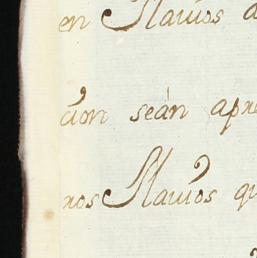 en Navios
cion seán apre
nos Navios qu